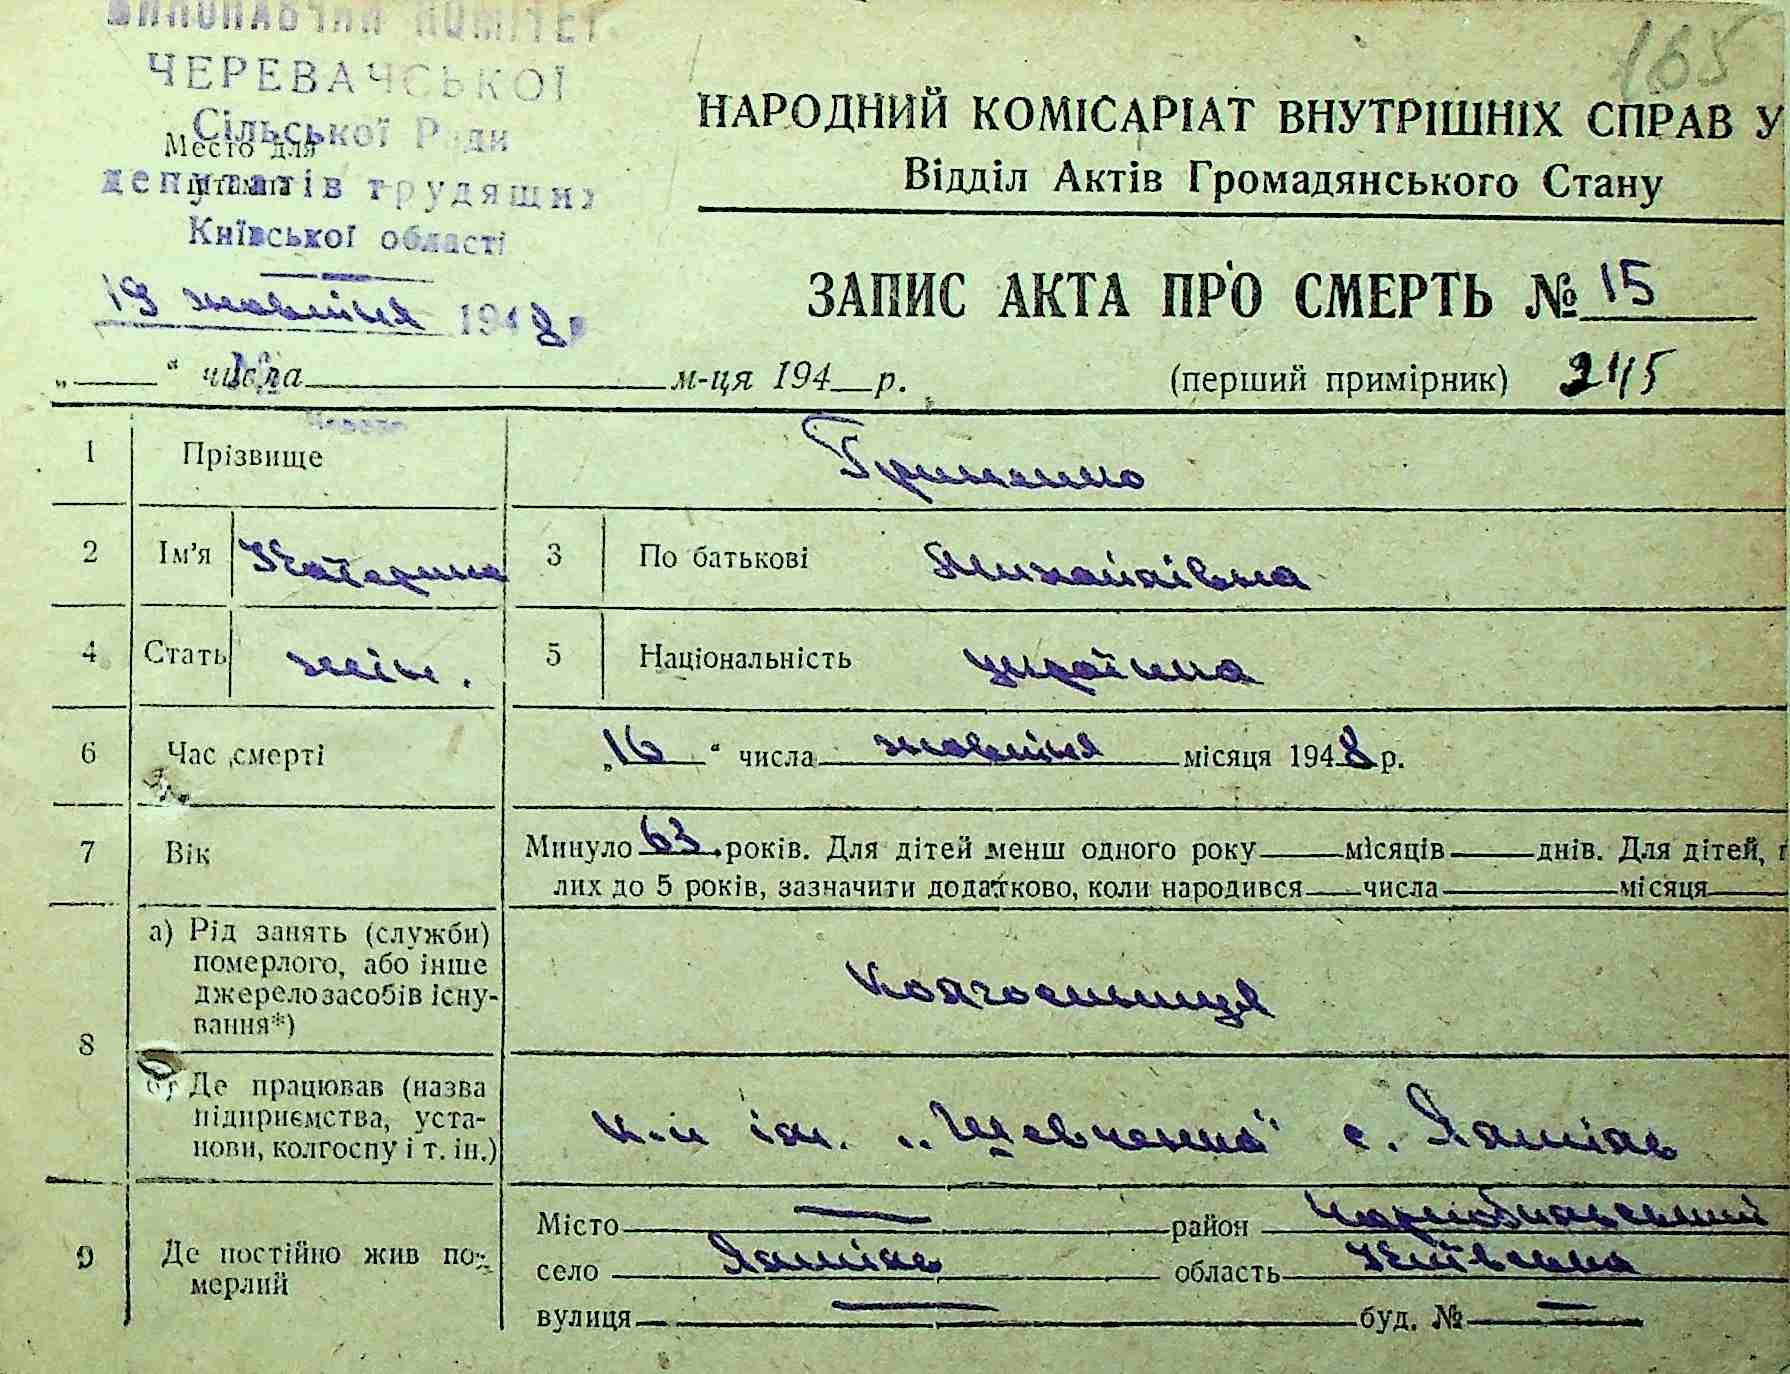 ВИКОНАВЧИЙ КОМІТЕТ
ЧЕРЕВАЧСЬКОЇ
Сільської Ради
Место для
штампа
депутатів трудящих
Київської області
19 жовтня 1948
165
НАРОДНИЙ КОМІСАРІАТ ВНУТРІШНІХ СПРАВ У
Відділ Актів Громадянського Стану
ЗАПИС АКТА ПРО СМЕРТЬ № 15
„ “ числа м-ця 194 р.
(перший примірник)
1 Прізвище Гриненко
2 Ім’я Катерина 3 По батькові Михайлівна
4 Стать жін. 5 Національність українка
6 Час смерті „16“ числа жовтня місяця 1948 р.
7 Вік Минуло 63 років. Для дітей менш одного року місяців днів. Для дітей,
лих до 5 років, зазначити додатково, коли народився числа місяця
8 а) Рід занять (служби)
померлого, або інше
джерело засобів існу-
вання*)
Колгоспниця
Де працював (назва
підприємства, уста-
нови, колгоспу і т. ін.)
к-п ім. „Шевченка“ с. Ямпіль
9 Де постійно жив по-
мерлий
Місто — район Чорнобильський
село Ямпіль область Київська
вулиця — буд. № —